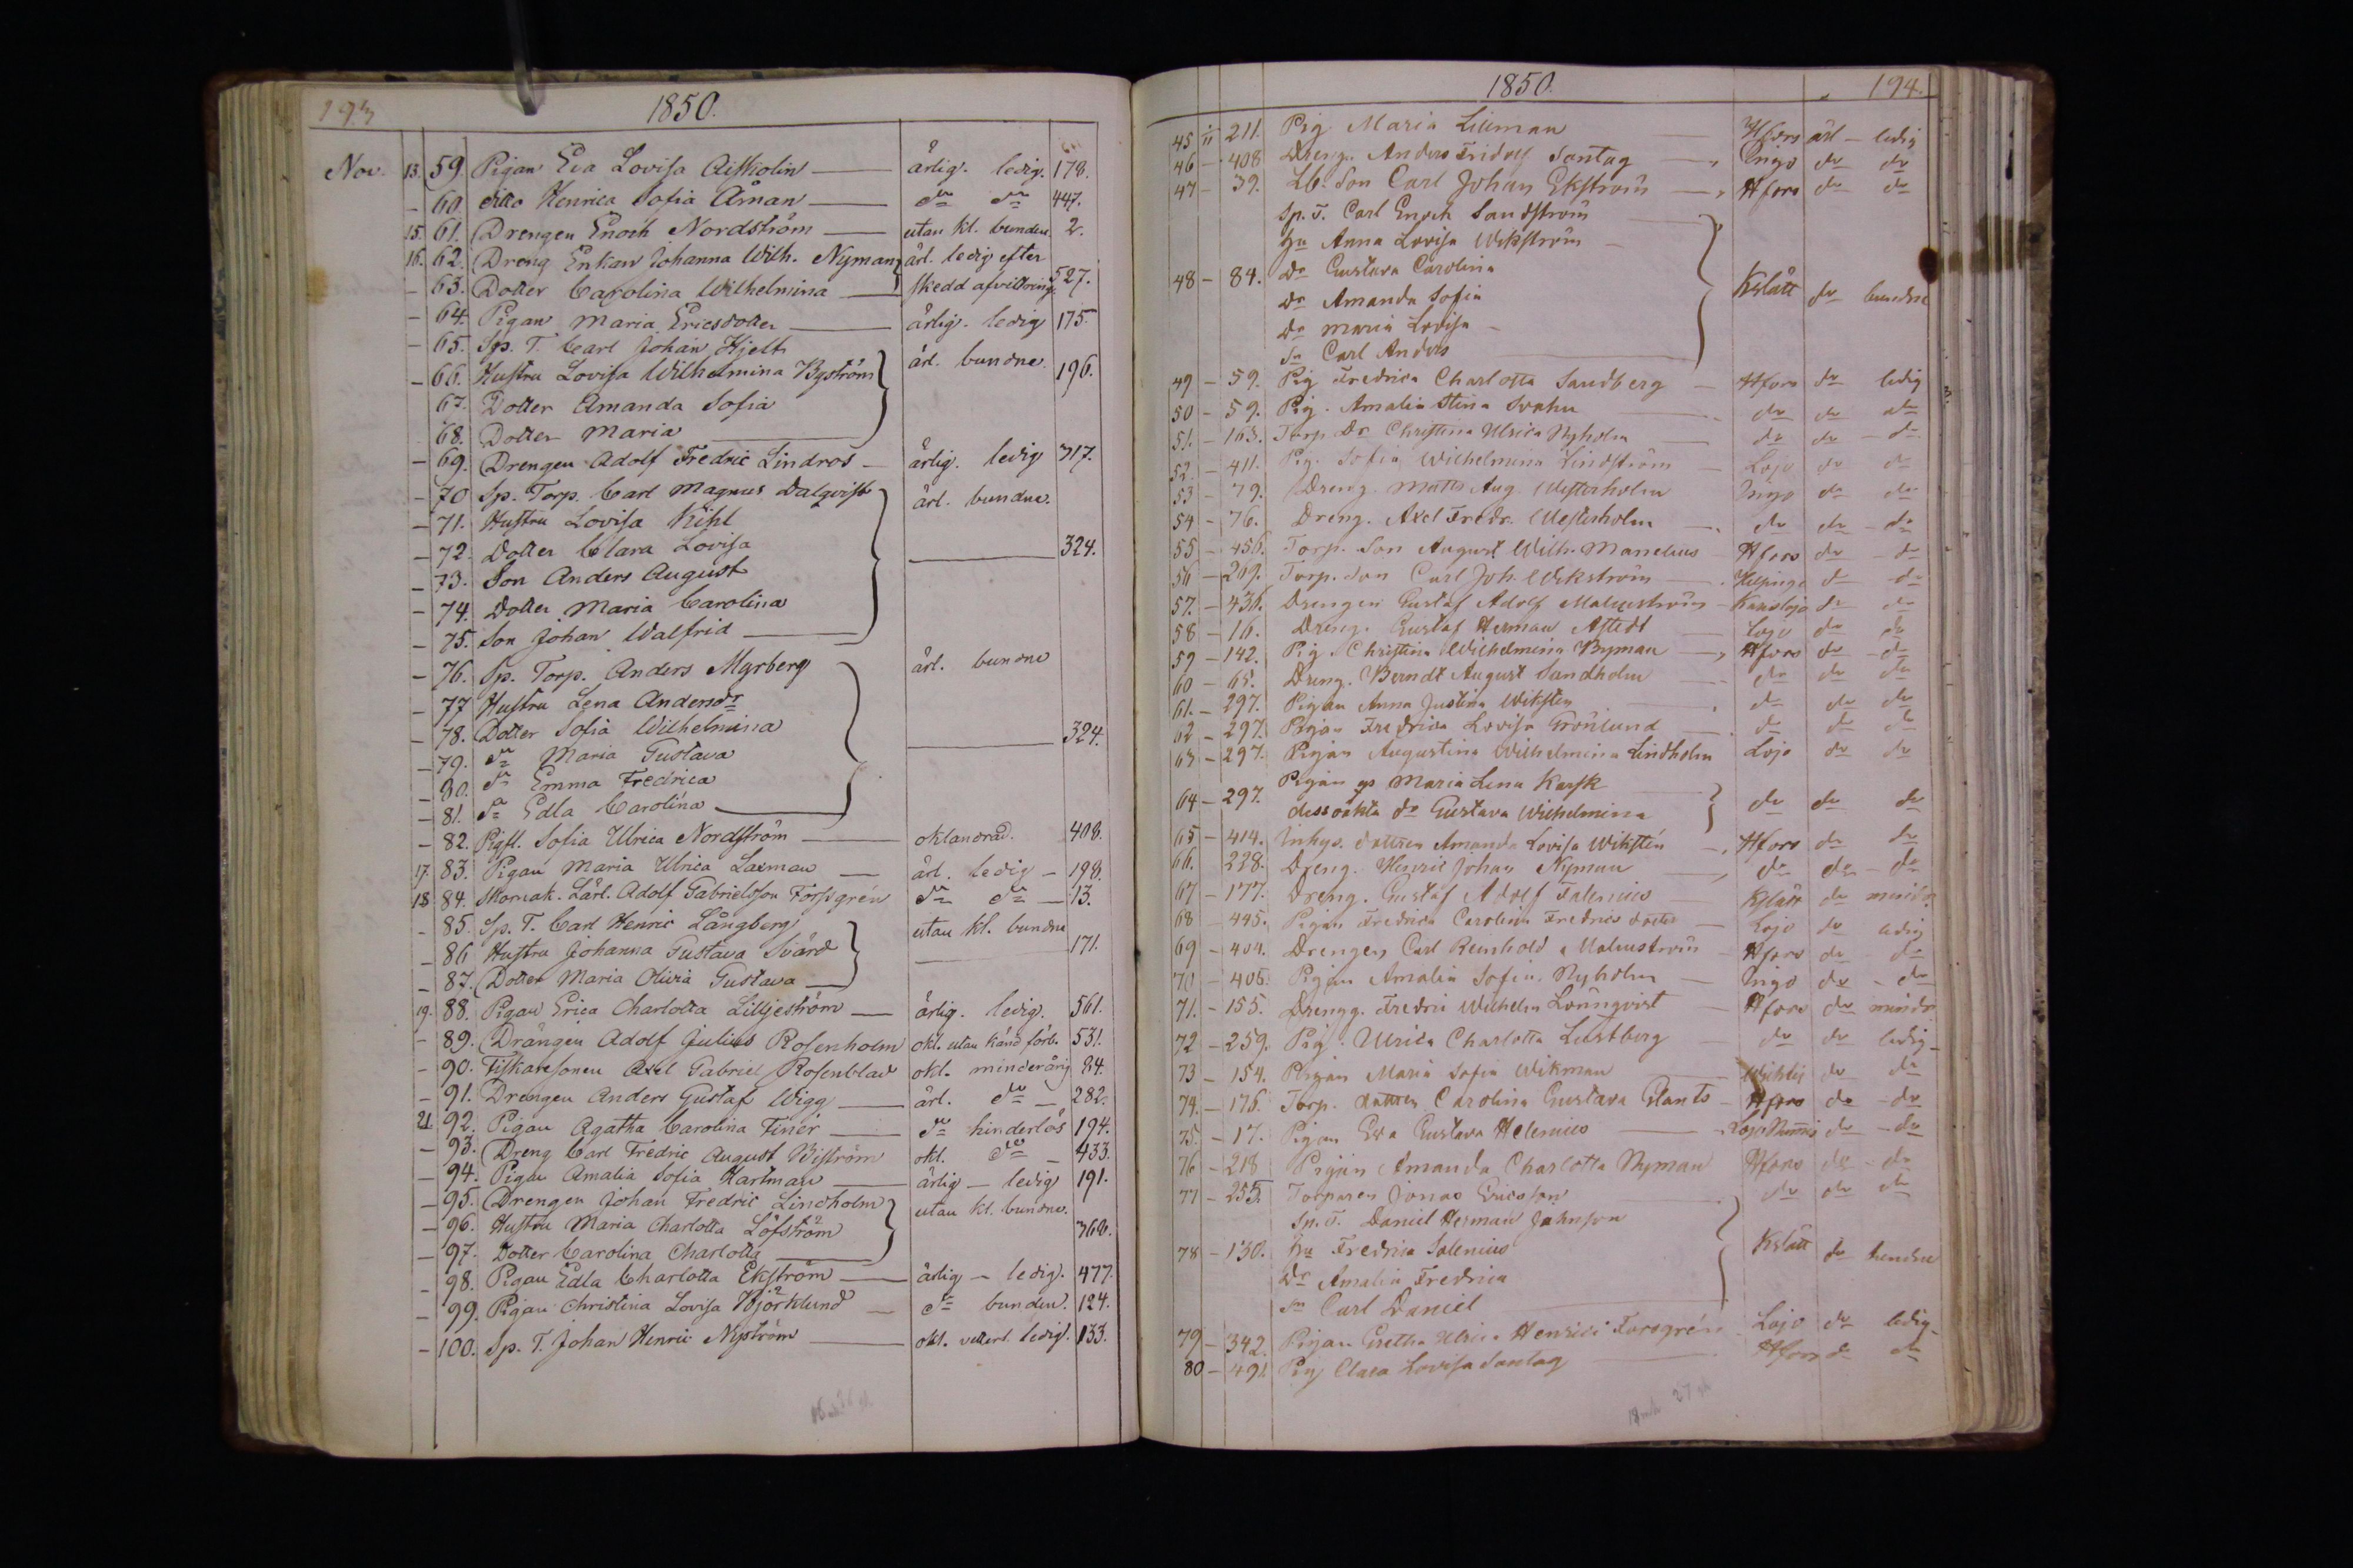 193
1850.
Nov. 13. 59. Pigan Eva Lovisa Aitkolin — ärlig. ledig. 178.
— 60. ditto Henrica Sofia Åman — do do 447.
15. 61. Drengen Enoch Nordström — utan kl. bunden 2.
16. 62. Dreng Enkan Johanna Wilh. Nyman ärl. ledig efter
— 63. Dotter Carolina Wilhelmina — skedd afvittring. 527.
— 64. Pigan Maria Ericsdotter — ärlig. ledig 175.
— 65. Sp. T. Carl Johan Hjelt
— 66. Hustru Lovisa Wilhelmina Byström ärl. bundne. 196.
67. Dotter Amanda Sofia
68. Dotter Maria —
— 69. Drengen Adolf Fredric Lindros — ärlig. ledig 317.
— 70 Sp. Torp. Carl Magnus Dalqvist ärl. bundne.
— 71. Hustru Lovisa Kihl
— 72. Dotter Clara Lovisa — 324.
— 73. Son Anders August
— 74. Dotter Maria Carolina
— 75. Son Johan Walfrid —
— 76. Sp. Torp. Anders Myrberg ärl. bundne
— 77 Hustru Lena Andersdr
— 78. Dotter Sofia Wilhelmina — 324.
— 79. do Maria Gustava
— 80. do Emma Fredrica
— 81. do Edla Carolina —
— 82. Pigfl. Sofia Ulrica Nordström — oklandrad. 408.
17. 83. Pigan Maria Ulrica Laxman — ärl. ledig — 198.
18 84. Skomak. Lärl. Adolf Gabrielsson Forssgrén do do — 13.
— 85. Sp. T. Carl Henric Långberg utan kl. bundne
— 86 Hustru Johanna Gustava Svärd — 171.
— 87. Dotter Maria Olivia Gustava —
19. 88. Pigan Erica Charlotta Lilljeström — ärlig. ledig. 561.
— 89. Drängen Adolf Julius Rosenholm okl. utan känd förb. 531.
— 90. Fiskaresonen Axel Gabriel Rosenblad okl. minderårig 24.
— 91. Drengen Anders Gustaf Wigg — ärl. do — 282.
21 92. Pigan Agatha Carolina Finér — do hinderlös 194.
— 93. Dreng Carl Fredric August Biström okl. do — 433.
— 94. Pigan Amalia Sofia Hartman — ärlig — ledig 191.
— 95. Drengen Johan Fredric Lindholm utan kl. bundne.
— 96. Hustru Maria Charlotta Löfström 368.
— 97. Dotter Carolina Charlotta —
— 98. Pigan Edla Charlotta Ekström — ärlig — ledig. 477.
— 99. Pigan Christina Lovisa Björklund — do bunden. 124.
— 100. Sp. T. Johan Henric Nyström — okl. ledig. 133.
1850. 194.
45 211. Pig Maria Liliman — Hfors ärl — ledig
46 — 408 Dreng. Anders Fridolf Sontag — Ingo do do
47 — 39. Lb. Son Carl Johan Ekström — Hfors do do
Sp. T. Carl Enoch Sandström
hu Anna Lovisa Wikström —
48 — 84. Dr Gustava Carolina Kslätt do bundne
Dr Amanda Sofia
Dr Maria Lovisa —
Sn Carl Anders
49 — 59. Pig Fredrica Charlotta Sandberg — Hfors do ledig
50 — 59. Pig. Amalia Stina Svahn do do do
51. — 163. Torp Dr Christina Ulrica Nyholm — do do — do
52. — 411. Pig. Sofia Wilhelmina Lindström — Lojo do do
53 — 79. Dreng. Matts Aug. Westerholm Ingo do do
54 — 76. Dreng. Axel Fredr. Westerholm — do do — do
55 — 456. Torp. Son August Wilh. Manelius Hfors do — do
56 — 209. Torp. Son Carl Joh. Wikström — Helsinge do — do
57. — 436. Drengen Gustaf Adolf Malmström — Karislojo do do
58 — 16. Dreng. Gustaf Herman Astedt Lojo do do
59 — 142. Pig. Christina Wilhelmina Byman — Hfors do — do
60 — 65. Dreng. Berndt August Sandholm do do do
61. — 297. Pigan Anna Justina Wiksten do do do
62 — 297. Pigan Fredrica Lovisa Grönlund do do do
63 — 297. Pigan Augustina Wilhelmina Lindholm Lojo do do
64 — 297. Pigan Maria Lena Karsk
dess oäkta dr Gustava Wilhelmina do do do
65 — 414. Inhys. dottren Amanda Lovisa Wikstén — Hfors do do
66. 228. Dreng. Henric Johan Nyman do do — do
67 — 177. Dreng. Gustaf Adolf Falenius — Kslätt do mindr
68 — 445. Pigan Fredrica Carolina Fredrics dotter — Lojo do ledig
69 — 404. Drengen Carl Reinhold Malmström — Hfors do do
70 — 406. Pigan Amalia Sofia Nyholm — Ingo do — do
71. — 155. Drengg. Fredric Wilhelm Lönnqvist — Hfors do mindr
72 — 259. Pig. Ulrica Charlotta Lustberg — do do ledig —
73 — 154. Pigan Maria Sofia Wikman Wichtis do do
74. — 176. Torp. dottren Carolina Gustava Glants — Hfors do — do
75. — 17. Pigan Eva Gustava Helenius — Lojo Nummi do — do
76 — 218 Pigan Amanda Charlotta Nyman Hfors do — do
77 — 255. Torparen Jonas Ericsson do do do
Sp. T. Daniel Herman Johnson
78 — 130. hu Fredrica Salenius Kslätt do bundne
Dr Amalia Fredrica
Sn Carl Daniel
79 — 342. Pigan Gretha Ulrica Henrici Forsgrén Lojo do ledig —
80 — 491. Pig Clara Lovisa Sontag Hfors do do